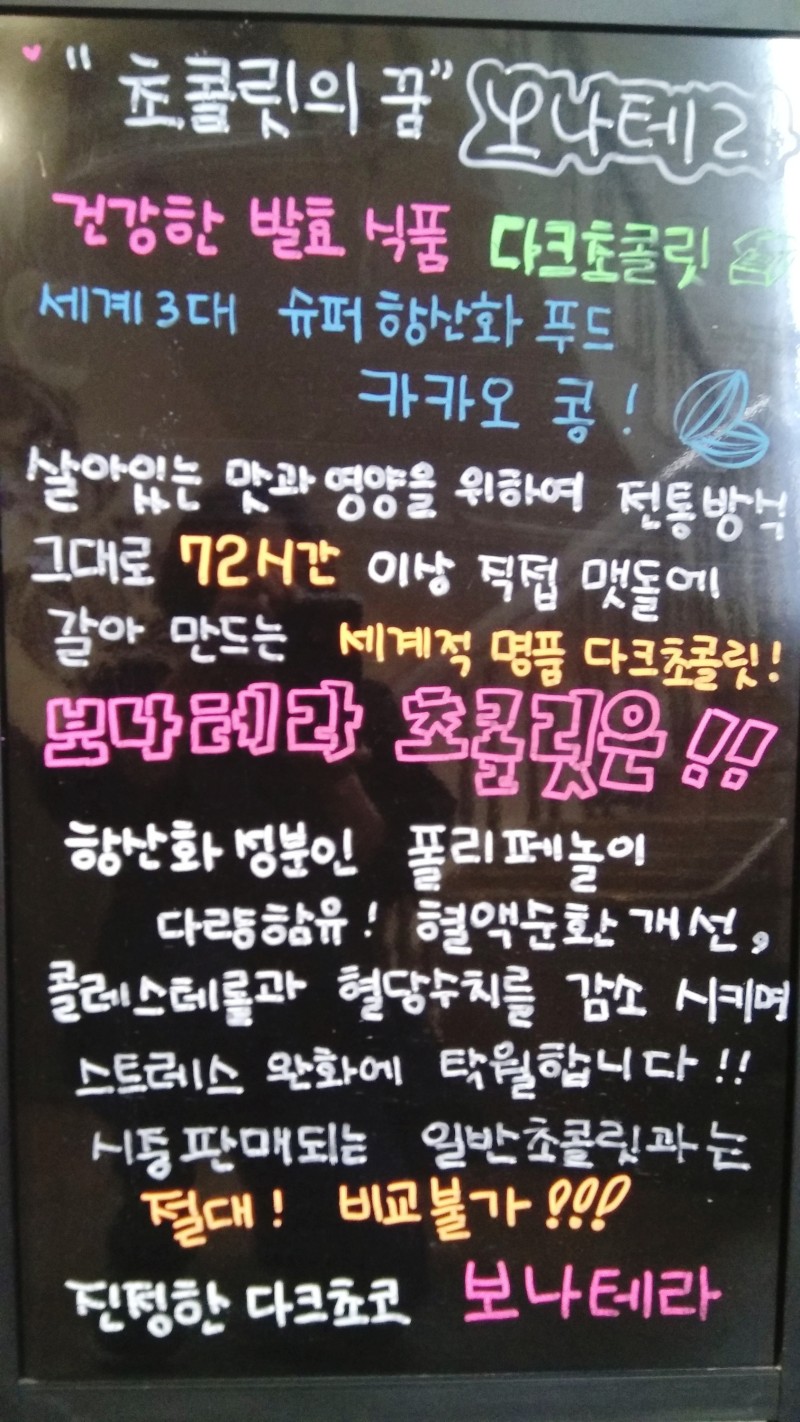 "초콜릿의 꿈" 보나테라
건강한 발효 식품 다크초콜릿
세계3대 슈퍼 항산화 푸드
카카오 콩!
살아있는 맛과 영양을 위하여 전통방식
그대로 72시간 이상 직접 맷돌에
갈아 만드는 세계적 명품 다크초콜릿!
보나테라 초콜릿은!!
항산화 성분인 폴리페놀이
다량함유! 혈액순환 개선,
콜레스테롤과 혈당수치를 감소 시키며
스트레스 완화에 탁월합니다!!
시중판매되는 일반초콜릿과는
절대! 비교불가!!!
진정한 다크쵸코 보나테라